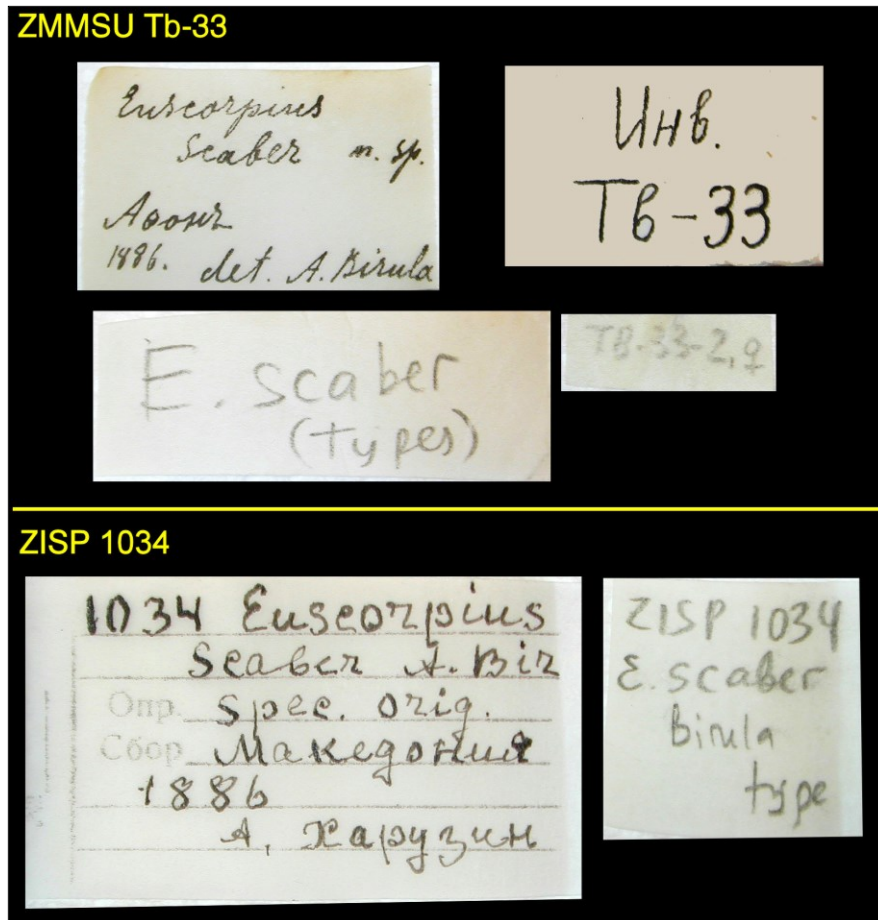 ZMMSU Tb-33
Euscorpius
scaber n. sp.
Аѳонъ
1886. det. A. Birula
Инв.
Тб-33
E. scaber
(types)
ТВ-33-2, ♀
ZISP 1034
1034 Euscorpius
Scaber A. Bir
Опр. Spec. orig.
Сбор Македония
1886
А, Харузин
ZISP 1034
E. scaber
Birula
type